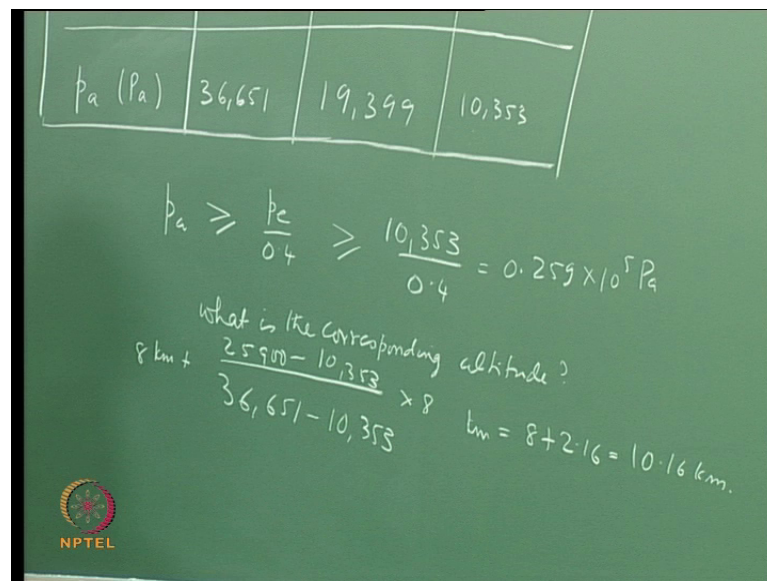 pa (Pa) 36,651 19,399 10,353
pa ⩾ pe/0.4 ⩾ 10,353/0.4 = 0.259 × 10⁵ Pa
what is the corresponding altitude?
8 km + (25900 − 10,353)/(36,651 − 10,353) × 8 km = 8 + 2.16 = 10.16 km.
NPTEL